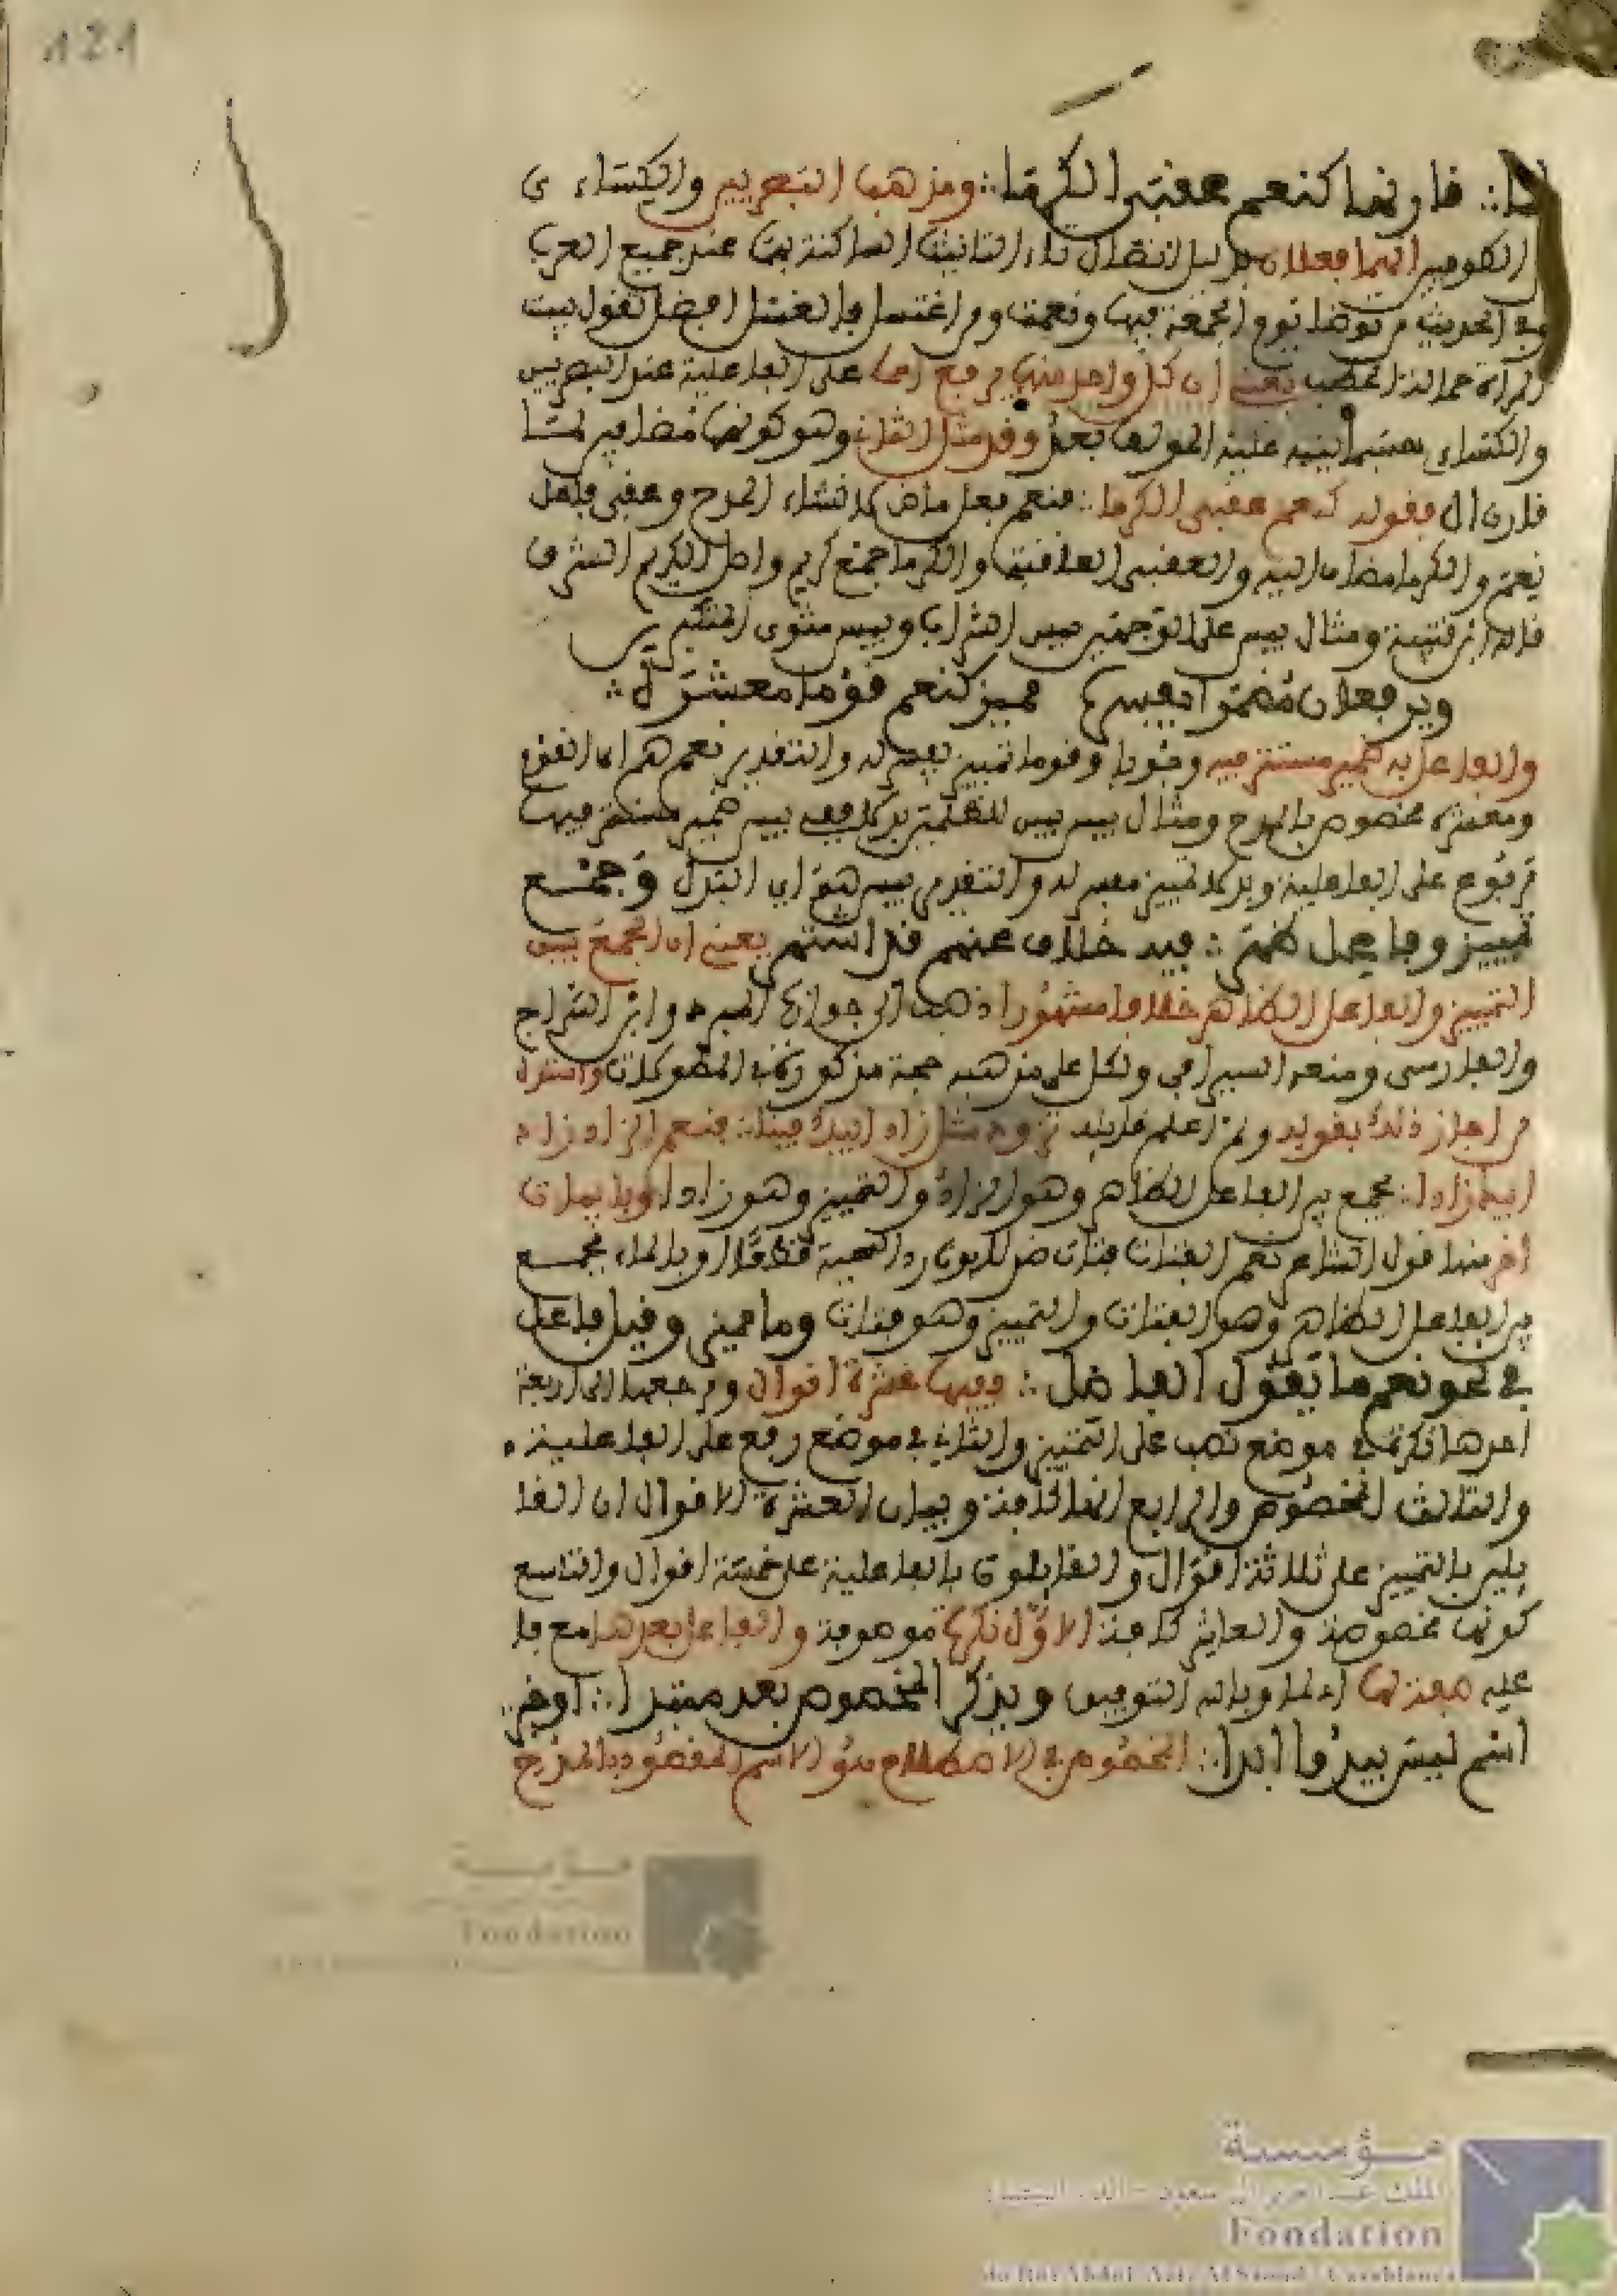 121
لها ∴ قارنها كنعم عقبى الكرما ∴ ومذهب البصريين والكساءى
الكوفيين انهما فعلان بدليل اتصال تاء التانيث الساكنة بهما عند جميع العرب
وفي الحديث من توضا يوم الجمعة فبها ونعمت ومن اغتسل فالغسل افضل تقول بيست
المراة حمالة الحطب يعني ان كل واحد منهما يرفع اسما على الفاعلية عند البصريين
والكساءى عليه المؤلف بعد وقد مثل الثاني وهو كونهما مضافين لما
قارن ال بقوله كنعم عقبى الكرما ∴ فنعم فعل ماض لانشاء المدح وعقبى فاعل
نعم والكرما مضاف اليه والعقبى العاقبة والكرما جمع كريم واصل الكريم الشرف
قاله ابن قتيبة ومثال بيس على الوجهين بيس الشراب وبيس مثوى المتكبرين
ويرفعان مضمرا يفسره مميز كنعم قوما معشره ∴
والفاعل به ضمير مستتر فيه وجوبا وقوما تمييز يفسر له والتقدير نعم هم اى القوم
ومعشره مخصوص بالمدح ومثال بيس بيس للظلمين بدلا ففي بيس ضمير مستتر فيها
مرفوع على الفاعلية وبدلا تمييز مفسر له والتقدير بيس هو اي البدل وجمع
تمييز وفاعل ظهر ∴ فيه خلاف عنهم قد اشتهر يعني ان الجمع بين
التمييز والفاعل الظاهر خلافا مشهورا ذهب الى جوازه المبرد وابن السراج
والفارسى ومنعه السيرافي ولكل على مذهبه حجة مذكورة في المطولات واستدل
من اجاز ذلك بقوله ولم اعلم قايله تزود مثل زاد ابيك فينا ∴ فنعم الزاد زاد
ابيك زادا ∴ فجمع بين الفاعل الظاهر وهو الزاد والتمييز وهو زادا وبابيات
اخر منها قول الشاعر نعم الفتاة فتاة هند لو بذلت رد التحية نطقا او بايماء فجمع
بين الفاعل الظاهر وهو الفتاة والتمييز وهو فتاة وما مميز وقيل فاعل
في نحو نعم ما يقول الفاضل ∴ ففيها عشرة اقوال ومرجعها الى اربعة
احدها نكرة في موضع نصب على التمييز والثاني في موضع رفع على الفاعلية
والثالث المخصوص والرابع انها كافة وبيان العشرة الاقوال ان القا
يلين بالتمييز على ثلاثة اقوال والقايلون بالفاعلية على خمسة اقوال والتاسع
كونها مخصوصة والعاشر كافة الاول نكرة موصوفة والفاعل بعدها مع ما
عليه صفة لها وبالله التوفيق ويذكر المخصوص بعد مبتدا ∴ او خبر
اسم ليس يبدوا ابدا ∴ المخصوص في الاصطلاح هو الاسم المقصود بالمدح
مؤسسة
Fondation
مؤسسة
الملك عبد العزيز آل سعود - الدار البيضاء
Fondation
du Roi Abdul-Aziz Al Saoud - Casablanca